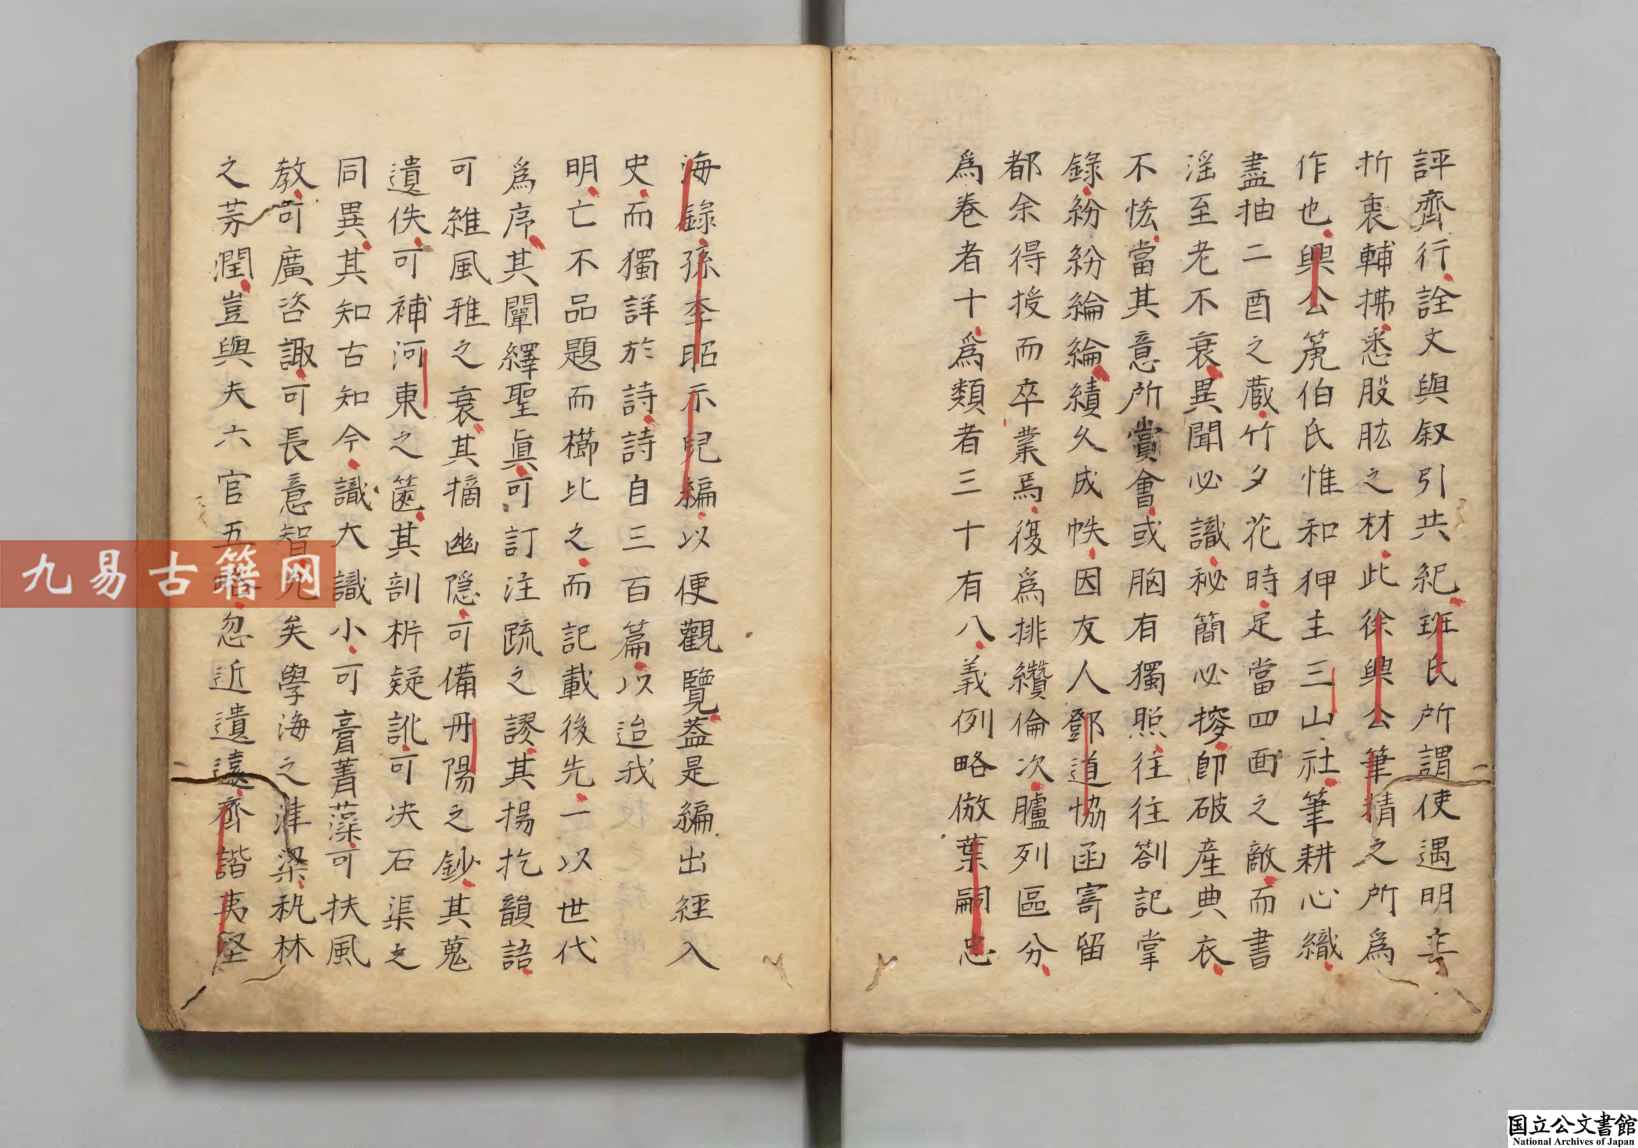 評齊行詮文與叙引共紀班氏所謂使遇明
折衷輔拂悉股肱之材此徐興公筆精之所為
作也興公箎伯氏惟和狎主三山社筆耕心織
盡抽二酉之藏竹夕花時定當四面之敵而書
淫至老不衰異聞必識秘簡必搜即破產典衣
不恡當其意所賞會或胸有獨照往往劄記掌
錄紛紛綸綸績久成帙因友人鄧道協函寄留
都余得授而卒業焉復為排纘倫次臚列區分
為卷者十為類者三十有八義例略倣葉嗣忠
海錄孫季昭示兒編以便觀覽蓋是編出經入
史而獨詳於詩詩自三百篇以迨我
明亡不品題而櫛比之而記載後先一以世代
為序其闡繹聖真可訂注疏之謬其揚扢韻語
可維風雅之衰其摘幽隱可備丹陽之鈔其蒐
遺佚可補河東之篋其剖析疑訛可決石渠之
同異其知古知今識大識小可膏菁藻可扶風
教可廣咨諏可長意智兒矣學海之津梁秇林
之芬潤豈與夫六官五忽近遺遠齊諧夷堅
九易古籍网
国立公文書館
National Archives of Japan